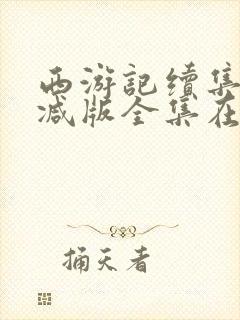 西游記续集
减版全集在
捅天者